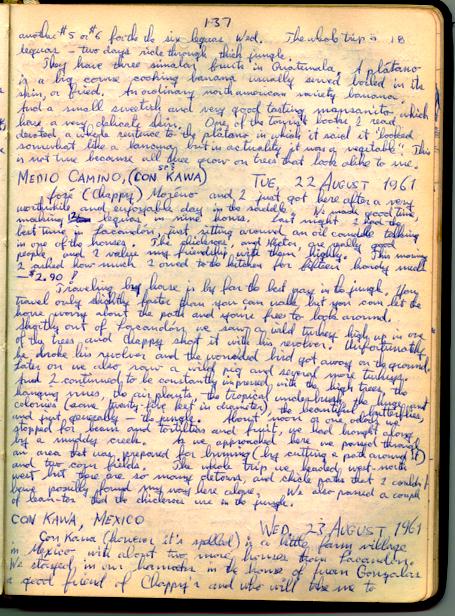 137
another #5 or #6 for the six leguas Wed. The whole trip is 18
leguas - two days ride through thick jungle.
They have three similar fruits in Guatemala. A plátano
is a big coarse cooking banana usually served boiled in its
skin, or fried. An ordinary north american variety banana.
And a small sweetish and very good tasting manzanita which
have a very delicate skin. One of the tourist books I read
devoted a whole sentence to the plátano in which it said it "looked
somewhat like a banana but in actuality it was a vegetable". This
is not true because all three grow on trees that look alike to me.
MEDIO CAMINO, (CON KAWA) TUE, 22 AUGUST 1961
José (Chappy) Moreno and I just got here after a very
worthwhile and enjoyable day in the saddle. We made good time,
making leguas in nine hours. Last night I had the
best time in Lacandón, just sitting around an oil candle talking
in one of the houses. The chicleros, and Hector, are really good
people and I value my friendship with them highly. This morning
I asked how much I owed to the kitchen for fifteen hardy meals
- $2.90!
Traveling by horse is by far the best way in the jungle. You
travel only slightly faster than you can walk but you can let the
horse worry about the path and you're free to look around.
Shortly out of Lacandón we saw a wild turkey high up in one
of the trees and Chappy shot it with his revolver. Unfortunately
he broke his revolver and the wounded bird got away on the ground.
Later on we also saw a wild pig and several more turkeys.
And I continued to be constantly impressed with the high trees, the
hanging vines, the air plants, the tropical underbrush, the huge ant
colonies (some twenty-five feet in diameter), the beautiful butterflies,
and just generally - the jungle. About noon or one o'clock we
stopped for beans and tortillas and fruit, we had brought along,
by a muddy creek. As we approached here we passed through
an area that was prepared for burning (by cutting a path around it)
and two corn fields. The whole trip we headed west-north
west but there are so many detours, and chicle paths that I couldn't
have possibly found my way here alone. We also passed a couple
of lean-tos that the chicleros use in the jungle.
CON KAWA, MEXICO WED, 23 AUGUST 1961
Con Kawa (however it's spelled) is a little farm village
in Mexico with about two more houses than Lacandón.
We stayed in our hammocks in the house of Juan Gonzalez
a good friend of Chappy's and who will take me to